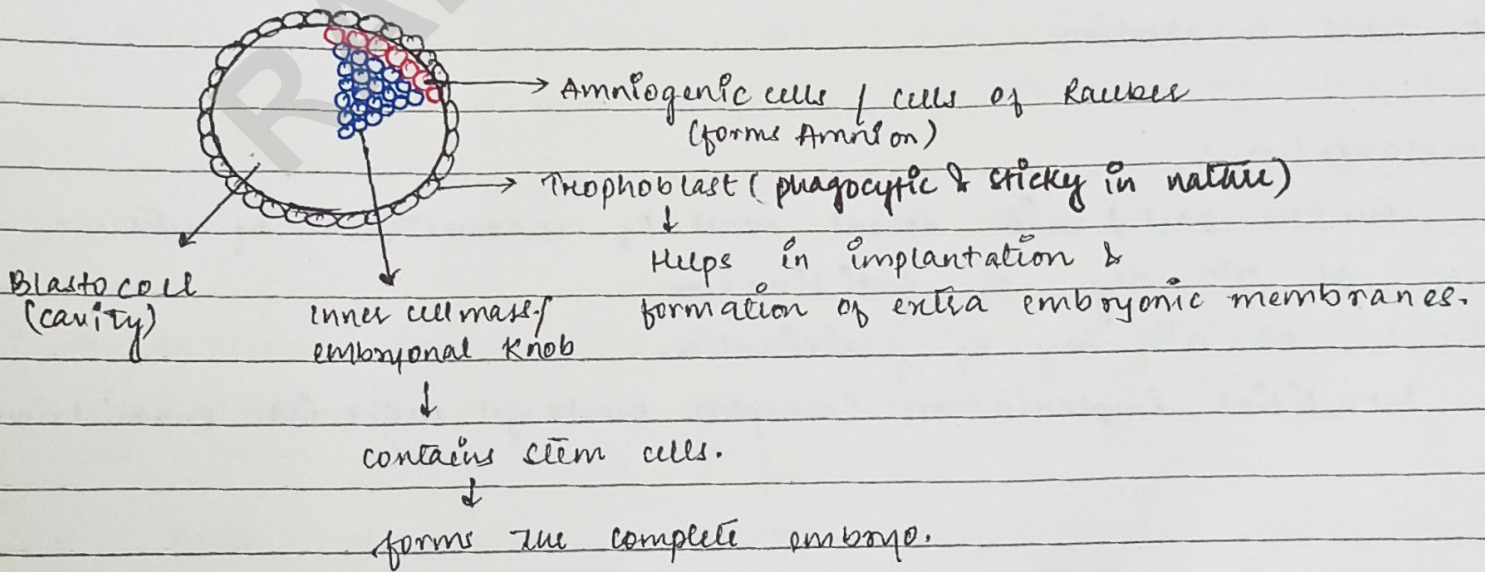 Amniogenic cells / cells of Rauber
(forms Amnion)
Trophoblast ( phagocytic & sticky in nature)
↓
Helps in implantation &
formation of extra embryonic membranes.
Blastocoel
(cavity)
inner cell mass /
embryonal Knob
↓
contains stem cells.
↓
forms the complete embryo.